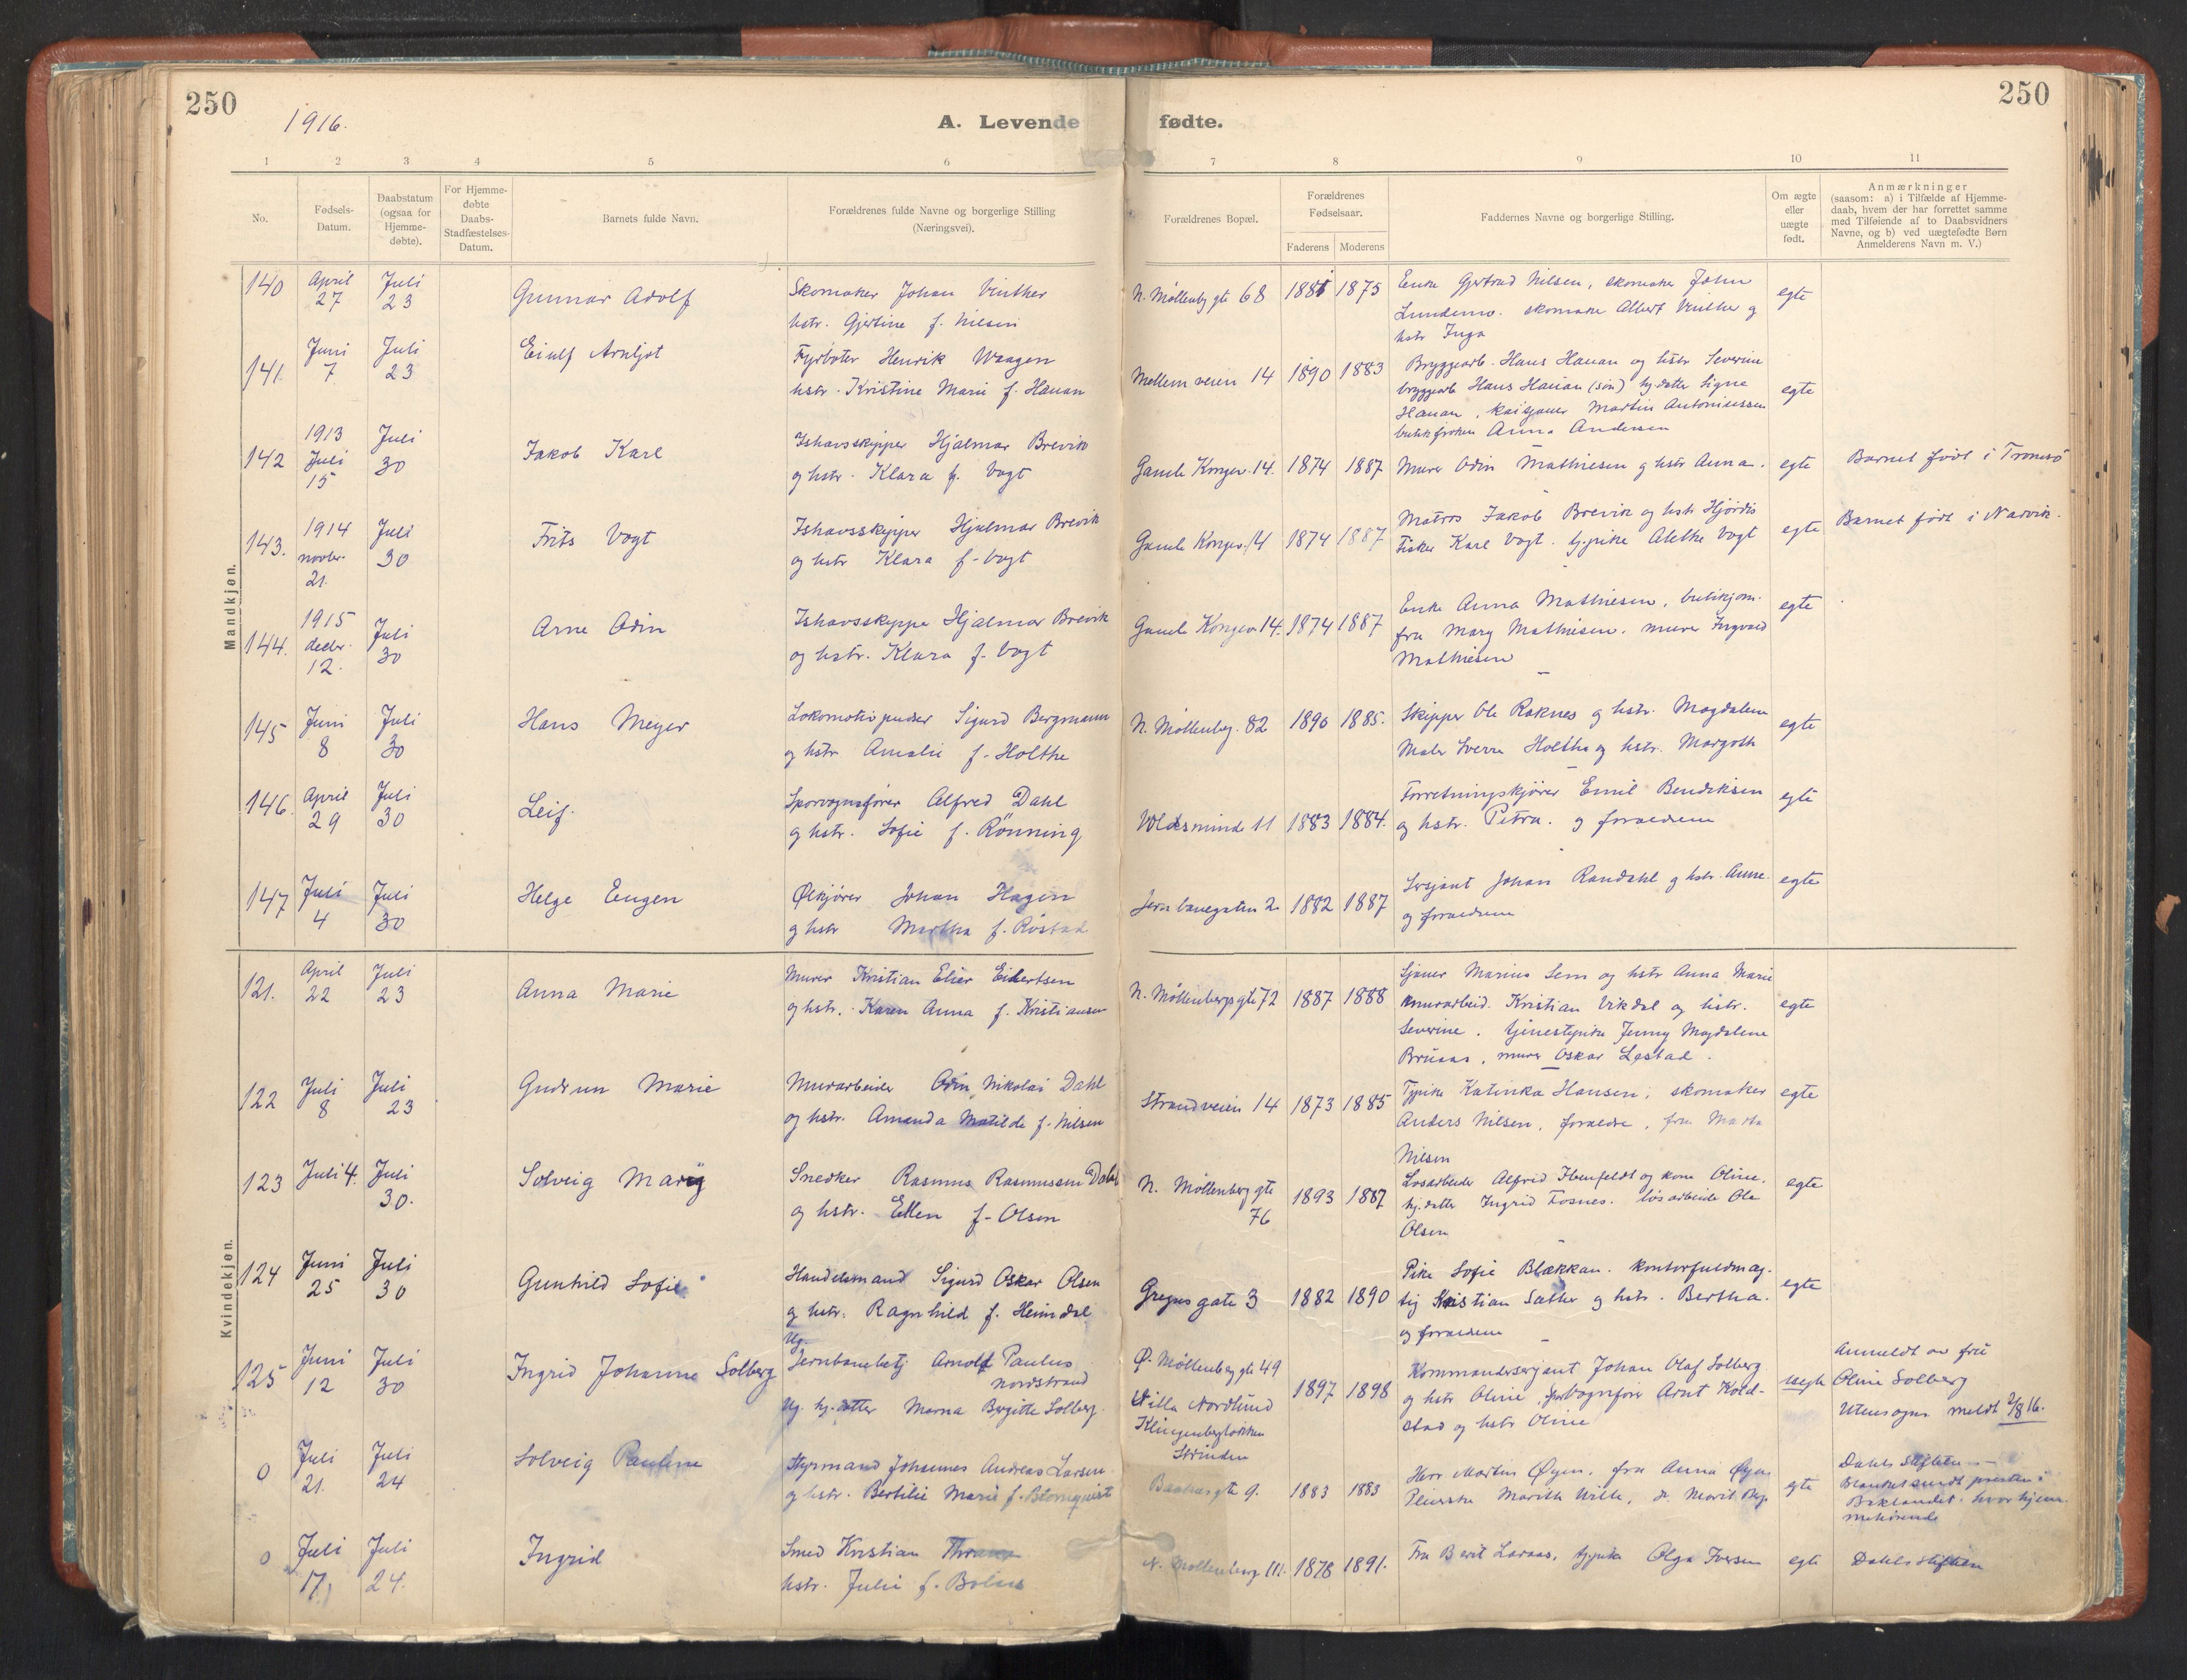 250
1916.
A. Levende fødte.
250
1 2 3 4 5 6 7 8 9 10 11
No.
Fødsels-
Datum.
Daabstatum
(ogsaa for
Hjemme-
døbte).
For Hjemme-
døbte
Daabs-
Stadfæstelses-
Datum.
Barnets fulde Navn.
Forældrenes fulde Navne og borgerlige Stilling
(Næringsvei).
Forældrenes Bopæl.
Forældrenes
Fødselsaar.
Faderens Moderens
Faddernes Navne og borgerlige Stilling.
Om ægte
eller
uægte
født.
Anmærkninger
(saasom: a) i Tilfælde af Hjemme-
daab, hvem der har forrettet samme
med Tilføiende af to Daabsvidners
Navne, og b) ved uægtefødte Børn
Anmelderens Navn m. V.)
Mandkjøn.
140
April
27
Juli
23
Gunnar Adolf
Skomaker Johan Vinther
hstr. Gjertine f. Nilsen
N. Møllenbg gte 68
1881
1875
Enke Gjertrud Nilsen, skomaker John
Lundemo. skomaker Albert Vinther g
hstr Inga
egte
141.
Juni
7
Juli
23
Eiulf Arnljot
Fyrbøter Henrik Waagen
hstr. Kristine Marie f. Hanan
Mellemveien 14
1890
1883
Bryggearb. Hans Hanan og hstr Severine
bryggearb Hans Hanan (søn) hj.datter Signe
Hanan, Martin Antoniussen
butikfrøken Anna Andersen
egte
142
1913
Juli
15
Juli
30
Jakob Karl
Ishavsskipper Hjalmar Brevik
og hstr. Klara f. Vogt
Gamle Kongev. 14.
1874
1887
Murer Odin Mathiesen g hstr Anna.
egte
Barnet født i Tromsö
143.
1914
novbr.
21.
Juli
30
Frits Vogt
Ishavsskipper Hjalmar Brevik
og hstr Klara f. Vogt
Gamle Kongev. 14
1874
1887
Matros Jakob Brevik og hstr Hjördis
Fisker Karl Vogt. tj.pike Alethe Vogt
egte
Barnet født i Narvik.
144.
1915
decbr.
12.
Juli
30
Arne Odin
Ishavsskipper Hjalmar Brevik
og hstr. Klara f. Vogt
Gamle Kongev. 14.
1874
1887
Enke Anna Mathiesen, butikjom-
fru Mary Mathiesen. murer Ingvald
Mathiesen
egte
145
Juni
8
Juli
30
Hans Meyer
Lokomotivpudser Sigurd Bergmann
og hstr Amalie f. Holthe
N. Møllenbg. 82
1890
1885.
Skipper Ole Raknes g hstr. Magdalene
Maler Sverre Holthe og hstr. Margoth
egte
146.
April
29
Juli
30
Leif.
Sporvognsfører Alfred Dahl
g hstr. Sofie f. Rönning
Voldsminde 11
1883
1884.
Forretningskjörer Emil Bendiksen
og hstr. Petra. g foraeldrene
egte
147
Juli
4
Juli
30
Helge Eugen
Ølkjører Johan Hagen
g hstr Martha f. Röstad
Jernbanegaten 2
1882
1887
Sersjant Johan Randahl g hstr. Anne.
og foraeldrene
egte
Kvindekjøn.
121.
April
22
Juli
23
Anna Marie
Murer Kristian Elier Eilertsen
og hstr. Karen Anna f. Kristiansen
N. Møllenbergs gte 72
1887
1888
Sjauer Marius Sem og hstr Anna Marie
murarbeid. Kristian Vikdal og hstr.
Severine. tjenestepike Jenny Magdalene
Bruaas, murer Oskar Lestad.
egte
122
Juli
8
Juli
23
Gudrun Marie
Murarbeider Odin Nikolai Dahl
og hstr. Amanda Matilde f. Nilsen
Strandveien 14
1873
1885
Tj.pike Katinka Hansen, skomaker
Anders Nilsen, foraeldre, fru Marta
Nilsen
egte
123
Juli 4.
Juli
30.
Solveig Marie
Snedker Rasmus Rasmussen Dahl
og hstr. Ellen f. Olsen
N. Møllenberg gte
76
1893
1887
Løsarbeider Alfred Ibenfeldt og kone Oline.
hj.datter Ingrid Fosnes. løsarbeider Ole
Olsen
egte
124
Juni
25
Juli
30
Gunhild Sofie
Handelsmand Sigurd Oskar Olsen
g hstr. Ragnhild f. Heimdal
Gregus gate 3
1882
1890
Pike Sofie Blækkan. kontorfuldmæg-
tig Kristian Sæther g hstr. Bertha.
og foraeldrene
egte
125
Juni
12
Juli
30
Ingrid Johanne Solberg
Ug.
Jernbanebetj Arnolf Paulus
Nordstrand
Ug. hj.datter Marna Bergitte Solberg.
Ø. Møllenberg gte 49
Villa Nordlund
Klingenbergløkken
Strinden
1897
1898
Kommandersersjant Johan Olaf Solberg
g hstr Oline, sporvognfører Arnt Kold-
stad og hstr Oline
uegte
Anmeldt av fru
Oline Solberg
Utensogns meldt 2/8 16.
0
Juli
21.
Juli
24
Solveig Pauline
Styrmand Johannes Andreas Larsen
g hstr. Bertilie Marie f. Blomquist
Baahus gt 9.
1883
1883
Herr Martin Øyen, fru Anna Øyen
Pleierske Marith Wille,
egte
Dahls stiftelse
Blanket sendt presten i
Baklandet. hvor hjem-
mehørende
0
Juli
17.
Juli
24.
Ingrid
Smed Kristian
hstr. Julie f.
N. Møllenberg 111.
1878
1891.
Fru Berit Laraas, tj.pike Olga Iversen
egte
Dahls stiftelse